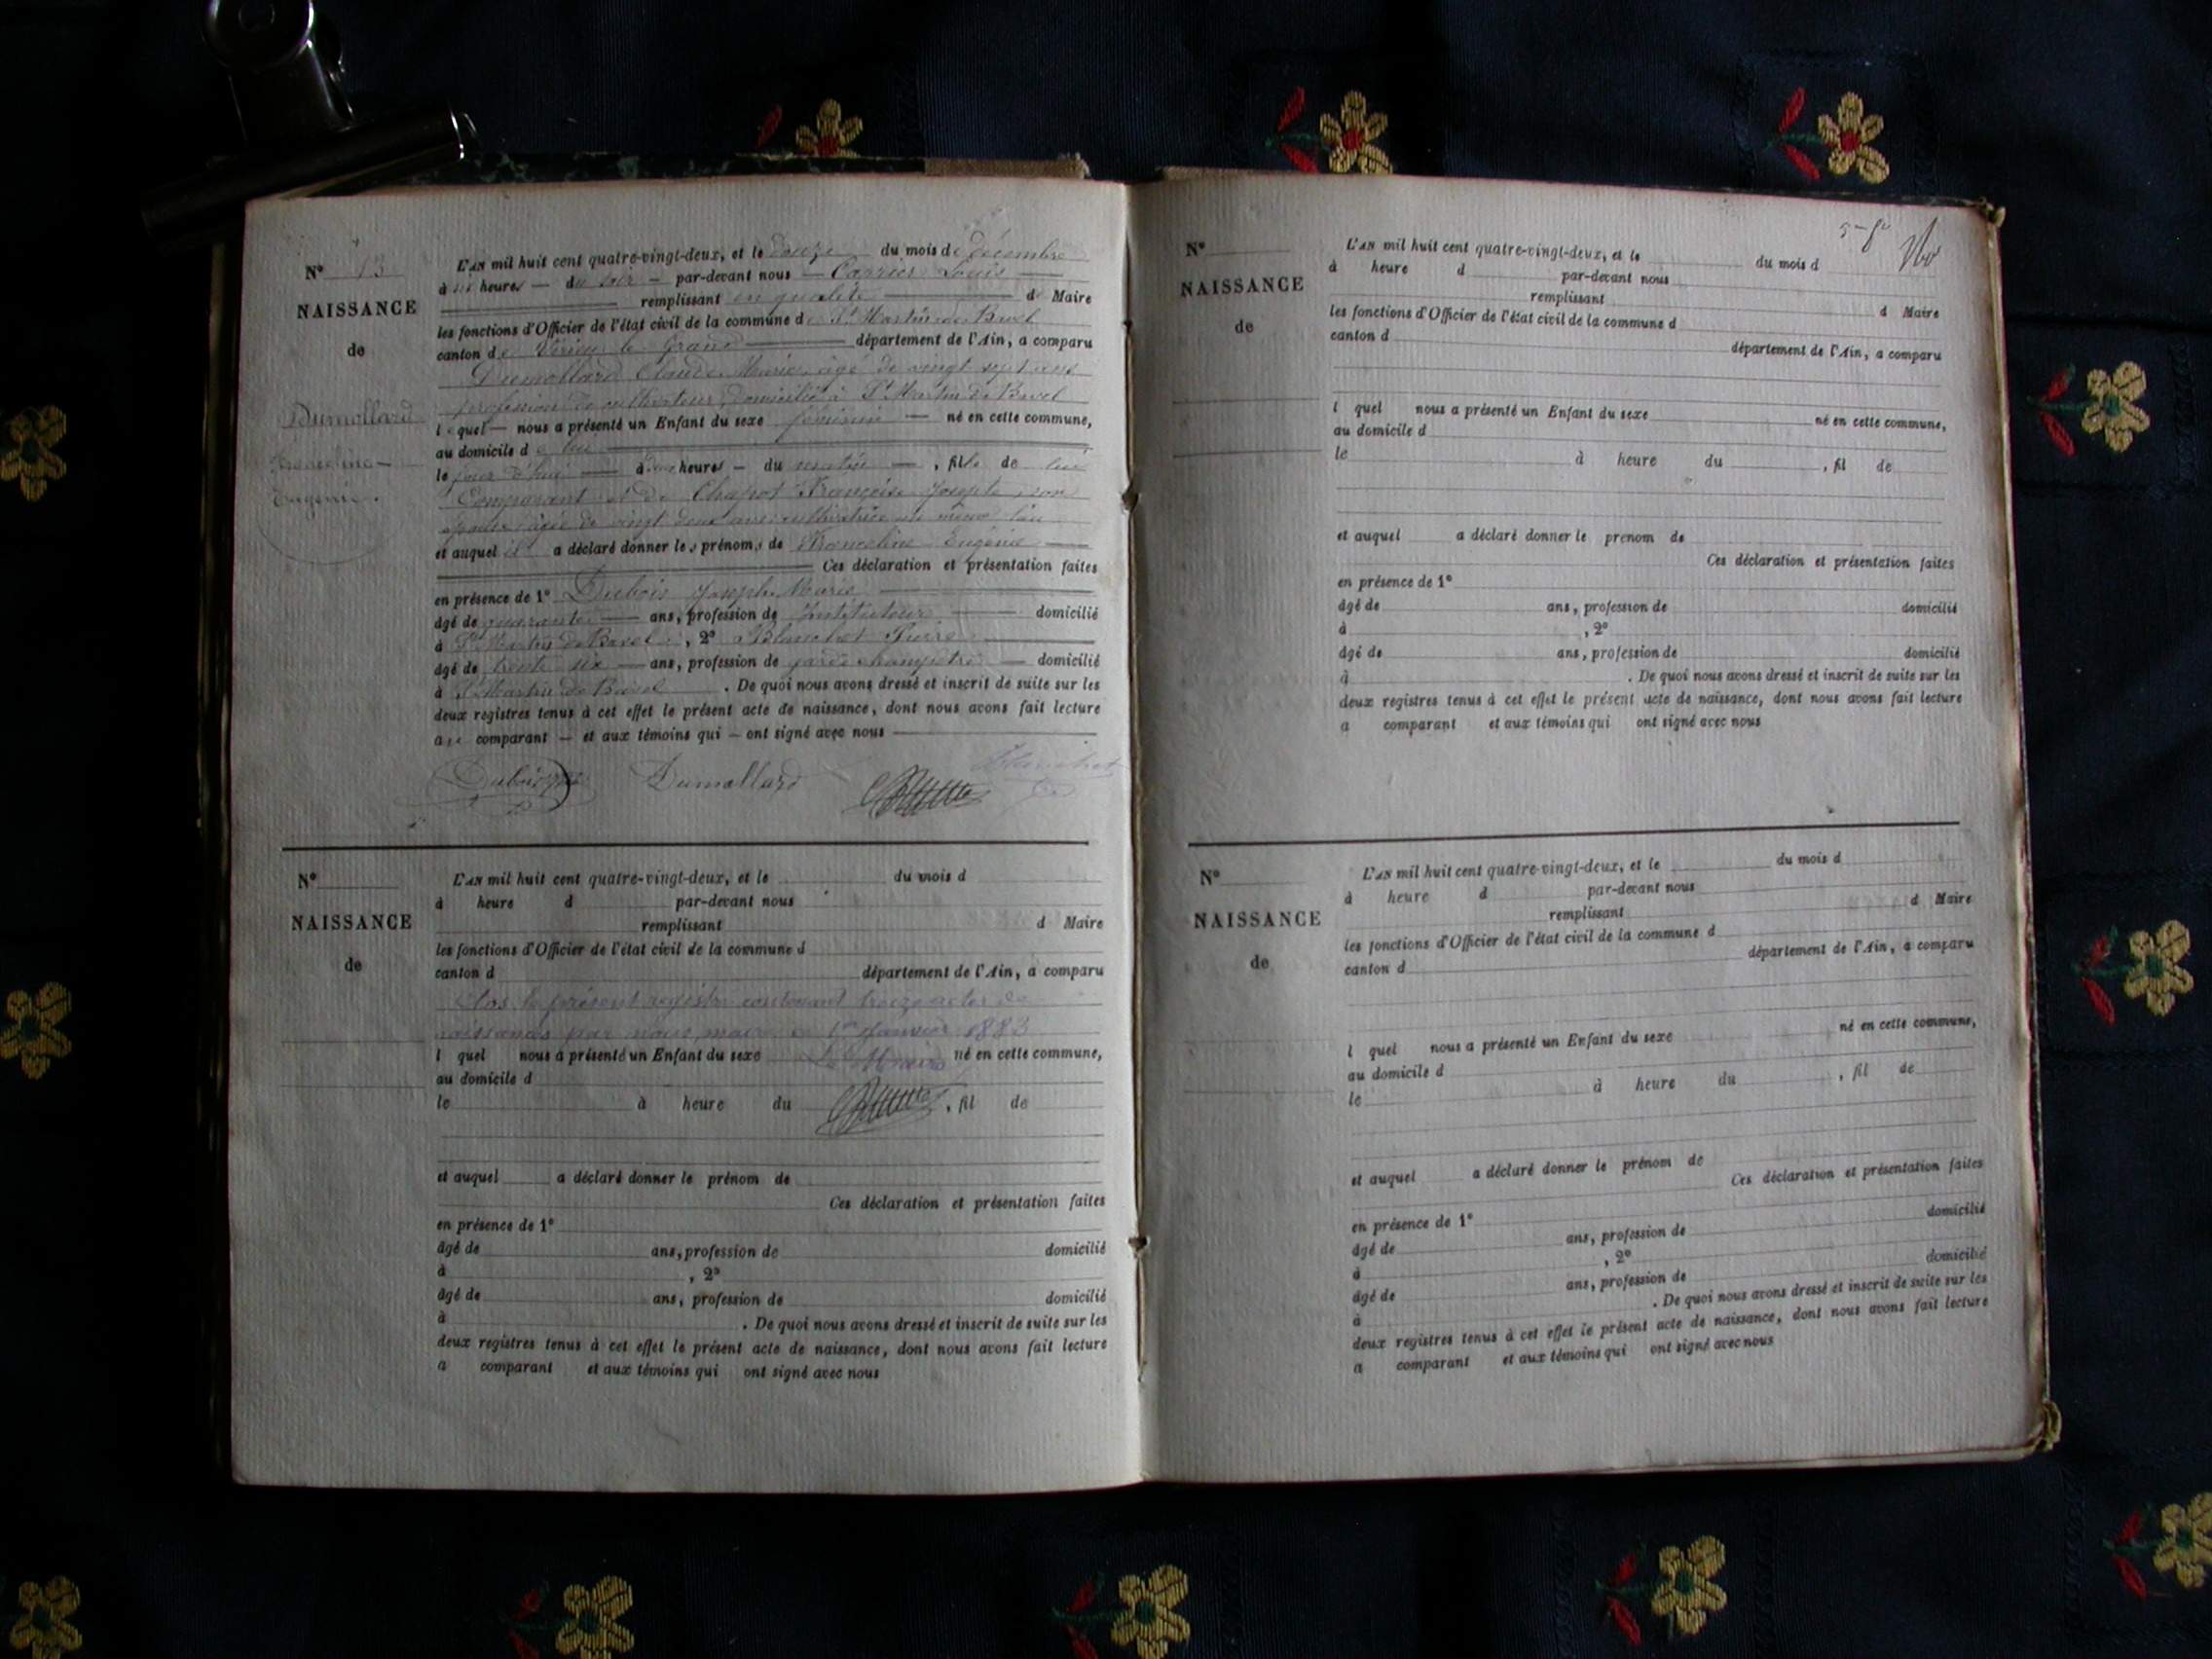 N° 13
NAISSANCE
de
Dumollard
Franceline
Eugénie.
L'AN mil huit cent quatre-vingt-deux, et le douze du mois de décembre
à six heures — du soir — par-devant nous — Carrier Louis —
remplissant en qualité de Maire
les fonctions d'Officier de l'état civil de la commune de St Martin de Bavel
canton de Virieu le Grand département de l'Ain, a comparu
Dumollard Claude Marie, âgé de vingt sept ans
profession de cultivateur, domicilié à St Martin de Bavel
lequel — nous a présenté un Enfant du sexe féminin — né en cette commune,
au domicile de lui
le jour d'hui — à heures — du matin —, fille de lui
Comparant et de Chapot Françoise Josepte, son
épouse, âgée de vingt deux ans, cultivatrice au même lieu
et auquel il a déclaré donner les prénoms de Franceline Eugénie —
Ces déclaration et présentation faites
en présence de 1° Dubois Joseph Marie
âgé de quarante — ans, profession de Instituteur — domicilié
à St Martin de Bavel, 2° Blanchet Pierre
âgé de trente six — ans, profession de garde champêtre — domicilié
à St Martin de Bavel. De quoi nous avons dressé et inscrit de suite sur les
deux registres tenus à cet effet le présent acte de naissance, dont nous avons fait lecture
au comparant — et aux témoins qui — ont signé avec nous —
Dubois Dumollard Blanchet
N°
NAISSANCE
de
L'AN mil huit cent quatre-vingt-deux, et le du mois d
à heure d par-devant nous
remplissant d Maire
les fonctions d'Officier de l'état civil de la commune d
canton d département de l'Ain, a comparu
Clos le présent registre contenant treize actes de
naissances par nous, maire, le 1er Janvier 1883
l quel nous a présenté un Enfant du sexe Le Maire né en cette commune,
au domicile d
le à heure du , fil de
et auquel a déclaré donner le prénom de
Ces déclaration et présentation faites
en présence de 1°
âgé de ans, profession de domicilié
à , 2°
âgé de ans, profession de domicilié
à . De quoi nous avons dressé et inscrit de suite sur les
deux registres tenus à cet effet le présent acte de naissance, dont nous avons fait lecture
a comparant et aux témoins qui ont signé avec nous
N°
NAISSANCE
de
L'AN mil huit cent quatre-vingt-deux, et le du mois d
à heure d par-devant nous
remplissant d Maire
les fonctions d'Officier de l'état civil de la commune d
canton d département de l'Ain, a comparu
l quel nous a présenté un Enfant du sexe né en cette commune,
au domicile d
le à heure du , fil de
et auquel a déclaré donner le prenom de
Ces déclaration et présentation faites
en présence de 1°
âgé de ans, profession de domicilié
à , 2°
âgé de ans, profession de domicilié
à . De quoi nous avons dressé et inscrit de suite sur les
deux registres tenus à cet effet le présent acte de naissance, dont nous avons fait lecture
a comparant et aux témoins qui ont signé avec nous
N°
NAISSANCE
de
L'AN mil huit cent quatre-vingt-deux, et le du mois d
à heure d par-devant nous
remplissant d Maire
les fonctions d'Officier de l'état civil de la commune d
canton d département de l'Ain, a comparu
l quel nous a présenté un Enfant du sexe né en cette commune,
au domicile d
le à heure du , fil de
et auquel a déclaré donner le prénom de
Ces déclaration et présentation faites
en présence de 1°
âgé de ans, profession de domicilié
à , 2°
âgé de ans, profession de domicilié
à . De quoi nous avons dressé et inscrit de suite sur les
deux registres tenus à cet effet le présent acte de naissance, dont nous avons fait lecture
a comparant et aux témoins qui ont signé avec nous